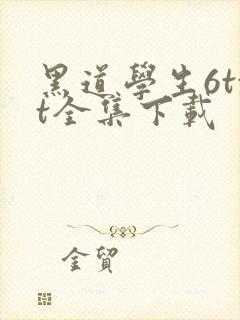 黑道學生6tx
t全集下載
金貿